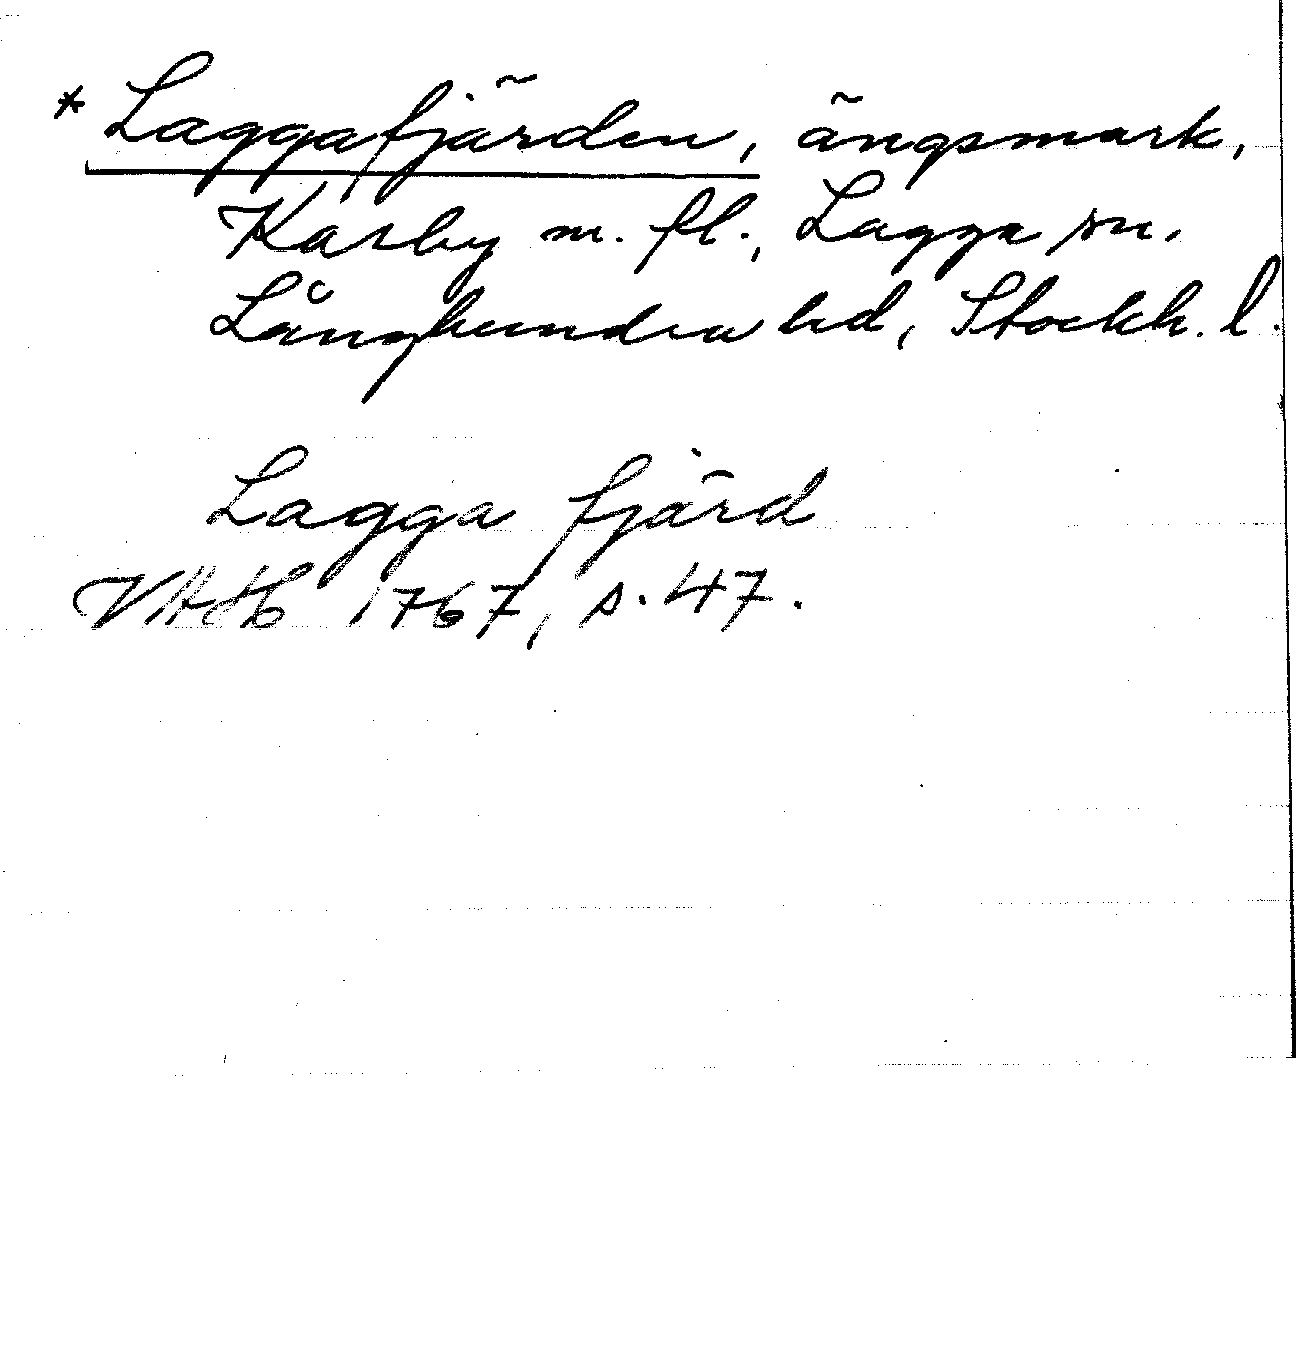 * Laggafjärden, ängsmark,
Karby m. fl., Lagga sn.
Långhundra hd, Stockh. l.
Lagga fjärd
VAH 1767, s. 47.